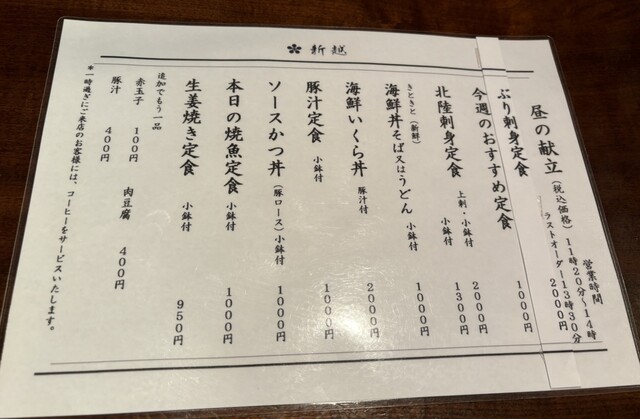 新越
営業時間
11時20分～14時
ラストオーダー13時30分
昼の献立（税込価格）
2000円
ぶり刺身定食 1000円
今週のおすすめ定食 2000円
北陸刺身定食 上刺・小鉢付 1300円
きときと（新鮮）
海鮮丼そば又はうどん 小鉢付 1000円
海鮮いくら丼 豚汁付 2000円
豚汁定食 小鉢付 1000円
ソースかつ丼（豚ロース）小鉢付 1000円
本日の焼魚定食 小鉢付 1000円
生姜焼き定食 小鉢付 950円
追加でもう一品
赤玉子 100円 肉豆腐 400円
豚汁 400円
＊一時過ぎにご来店のお客様には、コーヒーをサービスいたします。